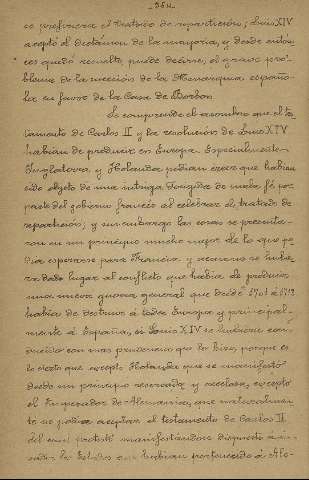 - 354 -
se prefiriera el tratado de repartición; Luis XIV
aceptó el dictámen de la mayoría, y desde enton-
ces quedó resuelto, puede decirse, el grave pro-
blema de la sucesión de la Monarquía españo-
la en favor de la Casa de Borbon.
Se comprende el asombro que el tes-
tamento de Carlos II y la resolucion de Luis XIV
habian de producir en Europa. Especialmente
Inglaterra, y Holanda, podian creer que habian
sido objeto de una intriga dirigida de mala fé por
parte del gobierno francés al celebrar el tratado de
repartición; y sin embargo las cosas se presenta-
ron en un principio mucho mejor de lo que po-
dia esperarse para Francia y acaso no se hubie-
ra dado lugar al conflicto que habia de producir
una nueva guerra general que desde 1701 á 1713
habia de destruir á toda Europa y principal-
mente á España, si Luis XIV se hubiera con-
ducido con mas prudencia que lo hizo, porque es
lo cierto que excepto Holanda que se manifestó
desde un principio reservada y recelosa, excepto
el Emperador de Alemania, que naturalmen-
te no podia aceptar el testamento de Carlos II
del cual protestó manifestándose dispuesto á
los Estados que habian pertenecido á Ale-